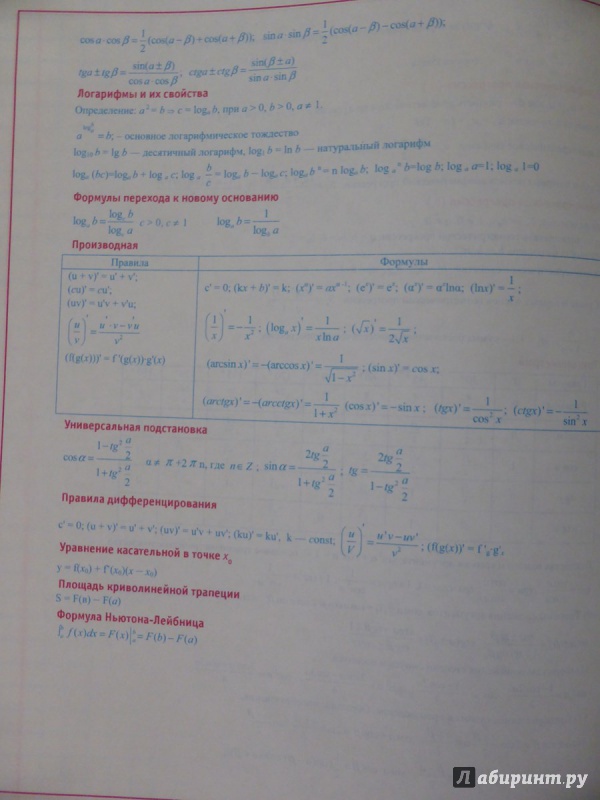 cos α·cos β = 1/2 (cos(α−β)+cos(α+β)); sin α·sin β = 1/2 (cos(α−β)−cos(α+β));
tgα ± tgβ = sin(α±β)/cos α·cos β, ctgα ± ctgβ = sin(β±α)/sin α·sin β
Логарифмы и их свойства
Определение: aᶜ = b ⇒ c = logₐ b, при a > 0, b > 0, a ≠ 1.
a^(log_a b) = b; – основное логарифмическое тождество
log₁₀ b = lg b — десятичный логарифм, logₑ b = ln b — натуральный логарифм
logₐ (bc)=logₐ b + logₐ c; logₐ b/c = logₐ b − logₐ c; logₐ b ⁿ = n logₐ b; log ₐⁿ bⁿ=log b; log ₐ a=1; log ₐ 1=0
Формулы перехода к новому основанию
logₐ b = log_c b/log_c a c > 0, c ≠ 1 logₐ b = 1/log_b a
Производная
Правила Формулы
(u + v)' = u' + v';
(cu)' = cu';
(uv)' = u'v + v'u;
(u/v)' = u'·v−v'u/v²
(f(g(x)))' = f '(g(x))·g'(x)
c' = 0; (kx + b)' = k; (xⁿ)' = axⁿ⁻¹; (eˣ)' = eˣ; (αˣ)' = αˣlnα; (lnx)' = 1/x ;
(1/x)' = −1/x² ; (logₐ x)' = 1/x ln a ; (√x)' = 1/2√x ;
(arcsin x)' = −(arccos x)' = 1/√1−x² ; (sin x)' = cos x;
(arctgx)' = −(arcctgx)' = 1/1+x² (cos x)' = −sin x ; (tgx)' = 1/cos² x ; (ctgx)' = −1/sin² x
Универсальная подстановка
cos α = 1−tg² a/2 / 1+tg² a/2 α ≠ π +2 π n, где n∈Z ; sin α = 2tg a/2 / 1+tg² a/2 ; tg = 2tg a/2 / 1−tg² a/2
Правила дифференцирования
c' = 0; (u + v)' = u' + v'; (uv)' = u'v + uv'; (ku)' = ku', k — const; (u/V)' = u'v−uv'/v² ; (f(g(x))' = f '₈·g'ₓ
Уравнение касательной в точке x₀
y = f(x₀) + f'(x₀)(x − x₀)
Площадь криволинейной трапеции
S = F(в) − F(a)
Формула Ньютона-Лейбница
∫ₐᵇ f(x)dx = F(x)|ₐᵇ = F(b) − F(a)
Лабиринт.ру